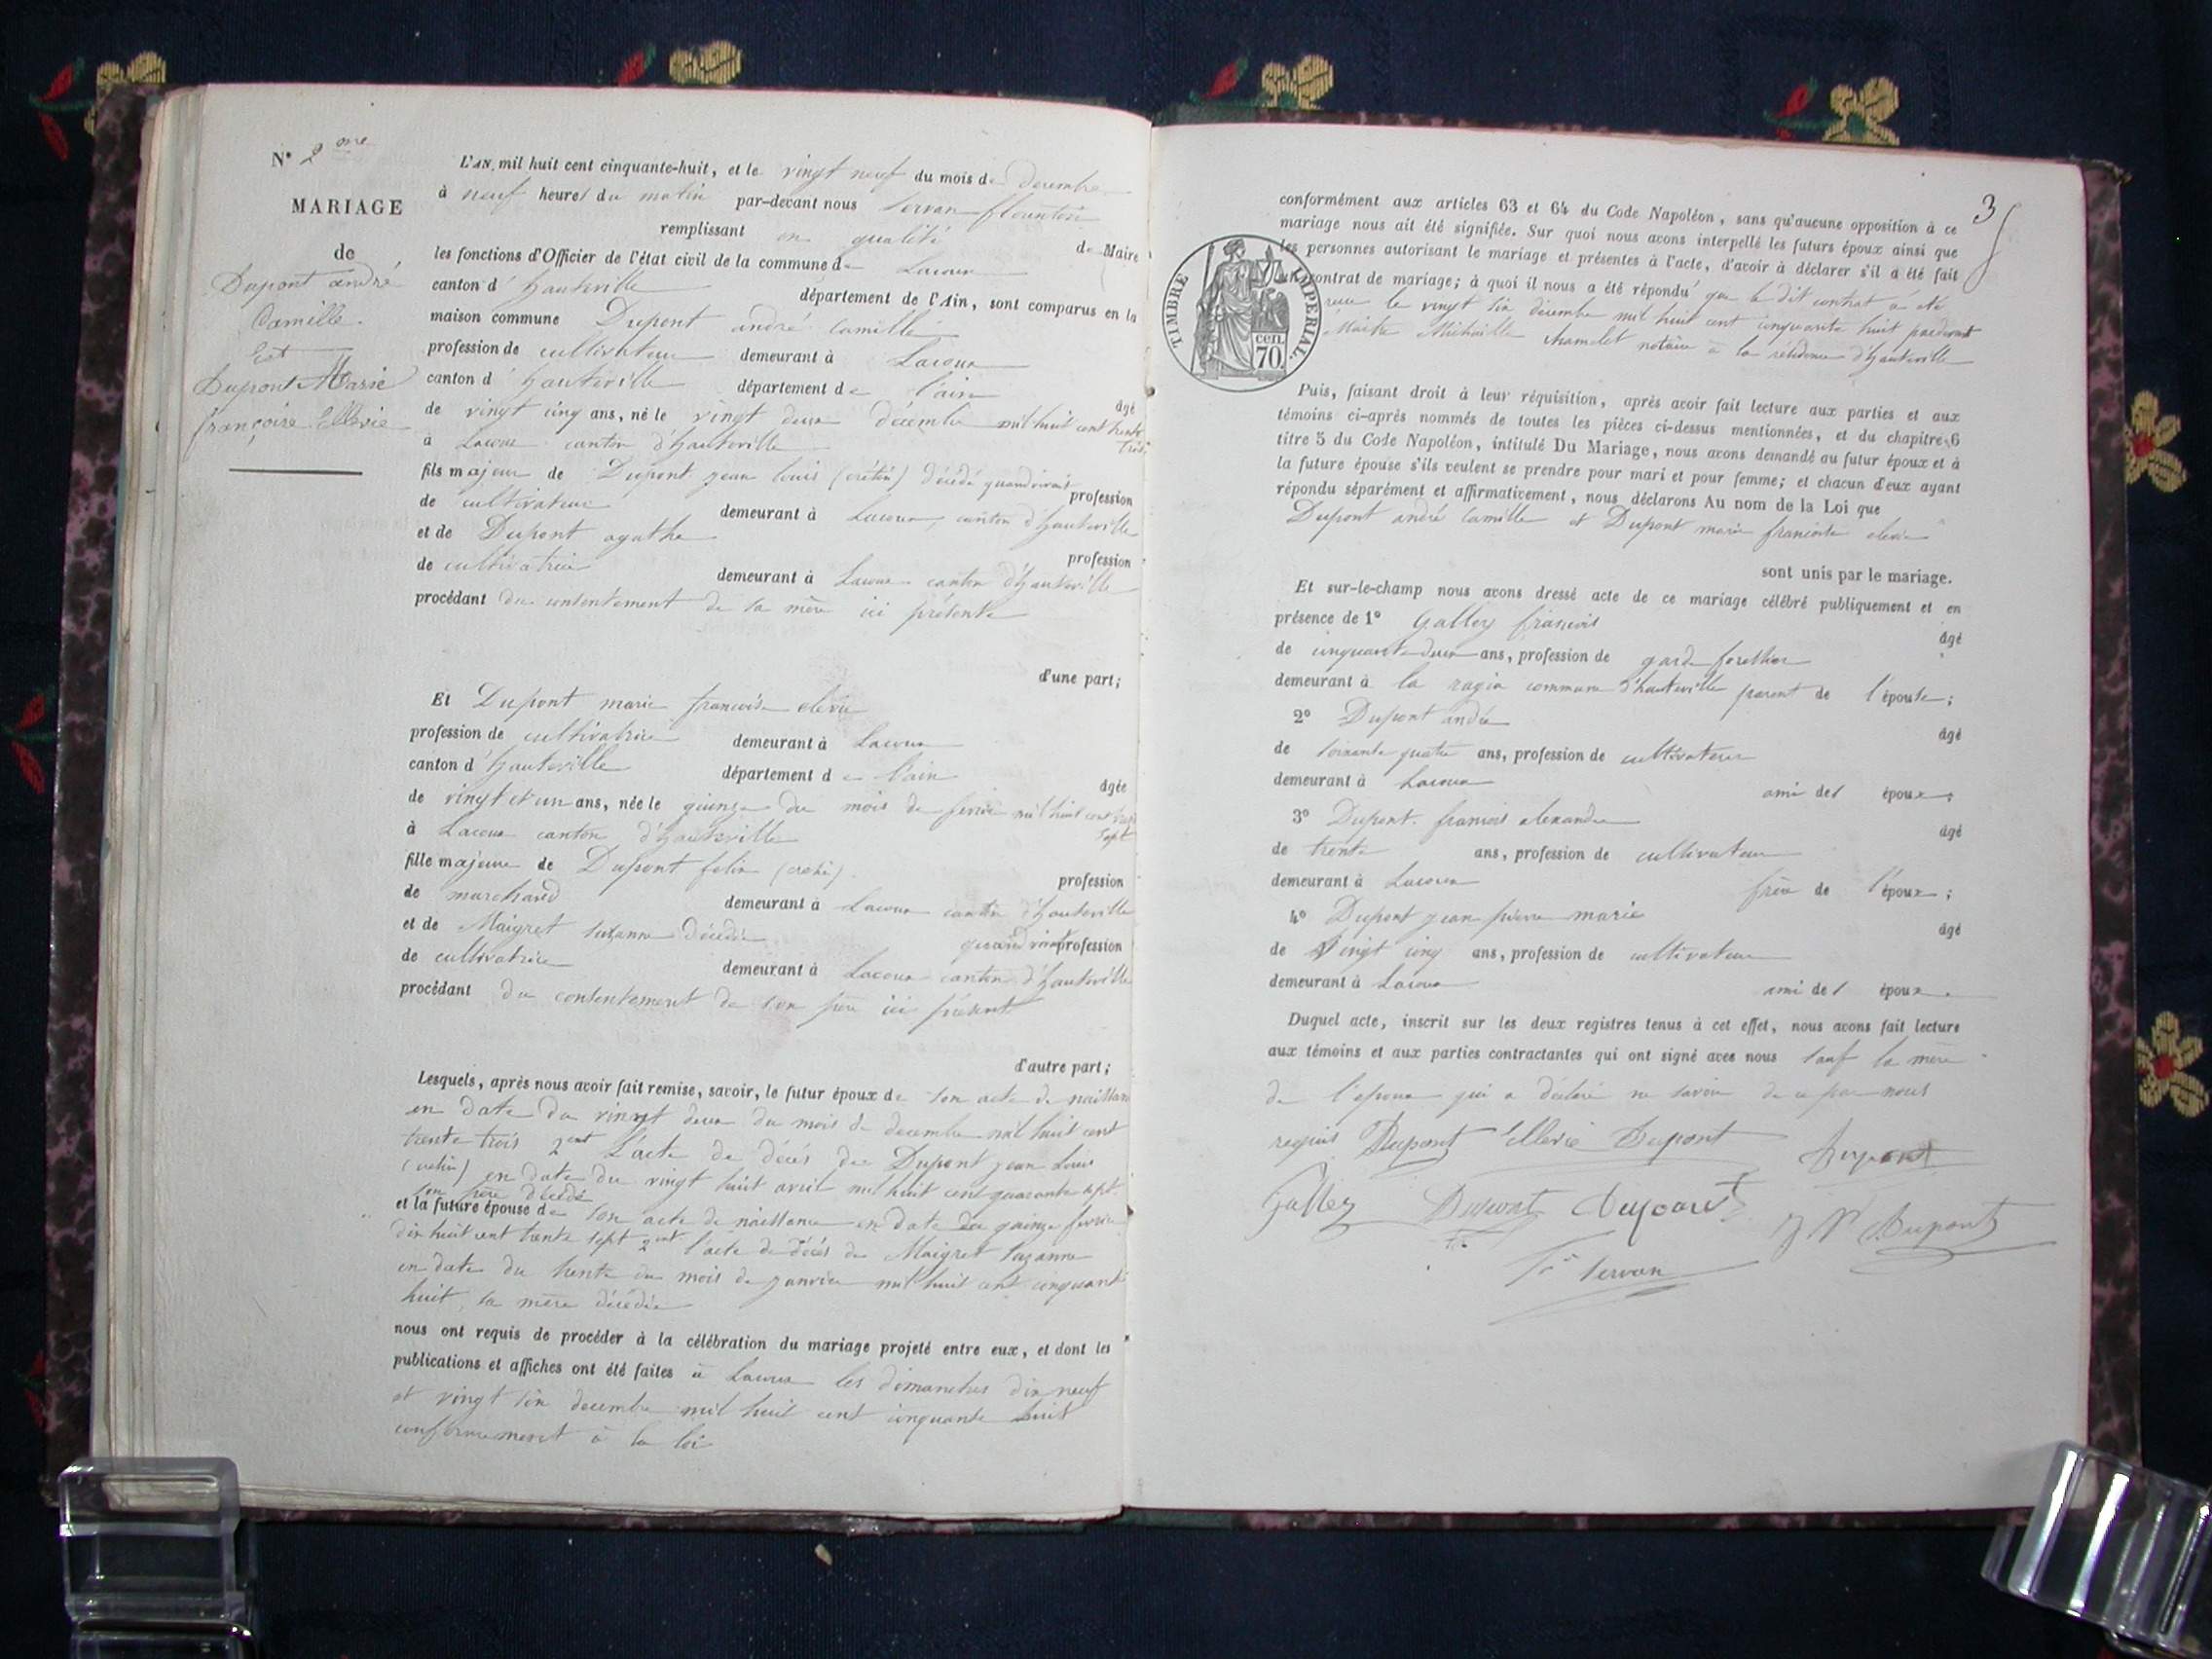 N° 2me
MARIAGE
de
Dupont andré
Camille.
Et
Dupont Marie
françoise Ellevie
L'AN mil huit cent cinquante-huit, et le vingt neuf du mois de decembre
à neuf heures du matin par-devant nous Servan
remplissant en qualité de Maire
les fonctions d'Officier de l'état civil de la commune de Lacoux
canton d'hauteville département de l'Ain, sont comparus en la
maison commune Dupont andré Camille
profession de cultivateur demeurant à Lacoux
canton d'hauteville département de l'ain âgé
de vingt cinq ans, né le vingt deux decembre mil huit cent trente
trois
à Lacoux canton d'hauteville
fils majeur de Dupont jean louis (crétin) décédé quand vivait
profession
de cultivateur demeurant à Lacoux canton d'hauteville
et de Dupont agathe
profession
de cultivatrice demeurant à Lacoux canton d'hauteville
procédant du consentement de sa mère ici présente
d'une part;
Et Dupont marie francoise elevie
profession de cultivatrice demeurant à Lacoux
canton d'hauteville département de l'ain
âgée
de vingt et un ans, née le quinze du mois de fevrier mil huit cent trente
sept
à Lacoux canton d'hauteville
fille majeure de Dupont felix
profession
de marchand demeurant à Lacoux canton d'hauteville
et de Maigret suzanne décédée quand vivait profession
de cultivatrice demeurant à Lacoux canton d'hauteville
procédant du consentement de son père ici présent
d'autre part;
Lesquels, après nous avoir fait remise, savoir, le futur époux de son acte de naissance
en date du vingt deux du mois de decembre mil huit cent
trente trois 2ent L'acte de décès de Dupont jean Louis
(crétin) en date du vingt huit avril mil huit cent quarante sept
son père décédé
et la future épouse de son acte de naissance en date du quinze fevrier
dix huit cent trente sept 2ent l'acte de décès de Maigret suzanne
en date du trente du mois de janvier mil huit cent cinquante
huit, sa mère décédée
nous ont requis de procéder à la célébration du mariage projeté entre eux, et dont les
publications et affiches ont été faites à Lacoux les dimanches dix neuf
et vingt six decembre mil huit cent cinquante huit
conformement à la loi
3
conformément aux articles 63 et 64 du Code Napoléon, sans qu'aucune opposition à ce
mariage nous ait été signifiée. Sur quoi nous avons interpellé les futurs époux ainsi que
les personnes autorisant le mariage et présentes à l'acte, d'avoir à déclarer s'il a été fait
un contrat de mariage; à quoi il nous a été répondu que le dit contrat a été
recu le vingt six decembre mil huit cent cinquante huit pardevant
Maitre chamelet notaire à la résidence d'hauteville
TIMBRE IMPERIAL.
cen.
70.
Puis, faisant droit à leur réquisition, après avoir fait lecture aux parties et aux
témoins ci-après nommés de toutes les pièces ci-dessus mentionnées, et du chapitre 6
titre 5 du Code Napoléon, intitulé Du Mariage, nous avons demandé au futur époux et à
la future épouse s'ils veulent se prendre pour mari et pour femme; et chacun d'eux ayant
répondu séparément et affirmativement, nous déclarons Au nom de la Loi que
Dupont andré Camille et Dupont marie francoise elevie
sont unis par le mariage.
Et sur-le-champ nous avons dressé acte de ce mariage célébré publiquement et en
présence de 1° Galley francois
âgé
de cinquante deux ans, profession de garde forestier
demeurant à la ragia commune d'hauteville parent de l'épouse;
2° Dupont andré
âgé
de soixante quatre ans, profession de cultivateur
demeurant à Lacoux ami des époux;
3° Dupont francois alexandre
âgé
de trente ans, profession de cultivateur
demeurant à Lacoux frère de l'époux;
4° Dupont jean pierre marie
âgé
de Vingt cinq ans, profession de cultivateur
demeurant à Lacoux ami des époux
Duquel acte, inscrit sur les deux registres tenus à cet effet, nous avons fait lecture
aux témoins et aux parties contractantes qui ont signé avec nous sauf la mère
de l'epoux qui a déclaré ne savoir de ce par nous
requis Dupont Ellevie Dupont Dupont
Galley Dupont Dupont J P Dupont
Servan